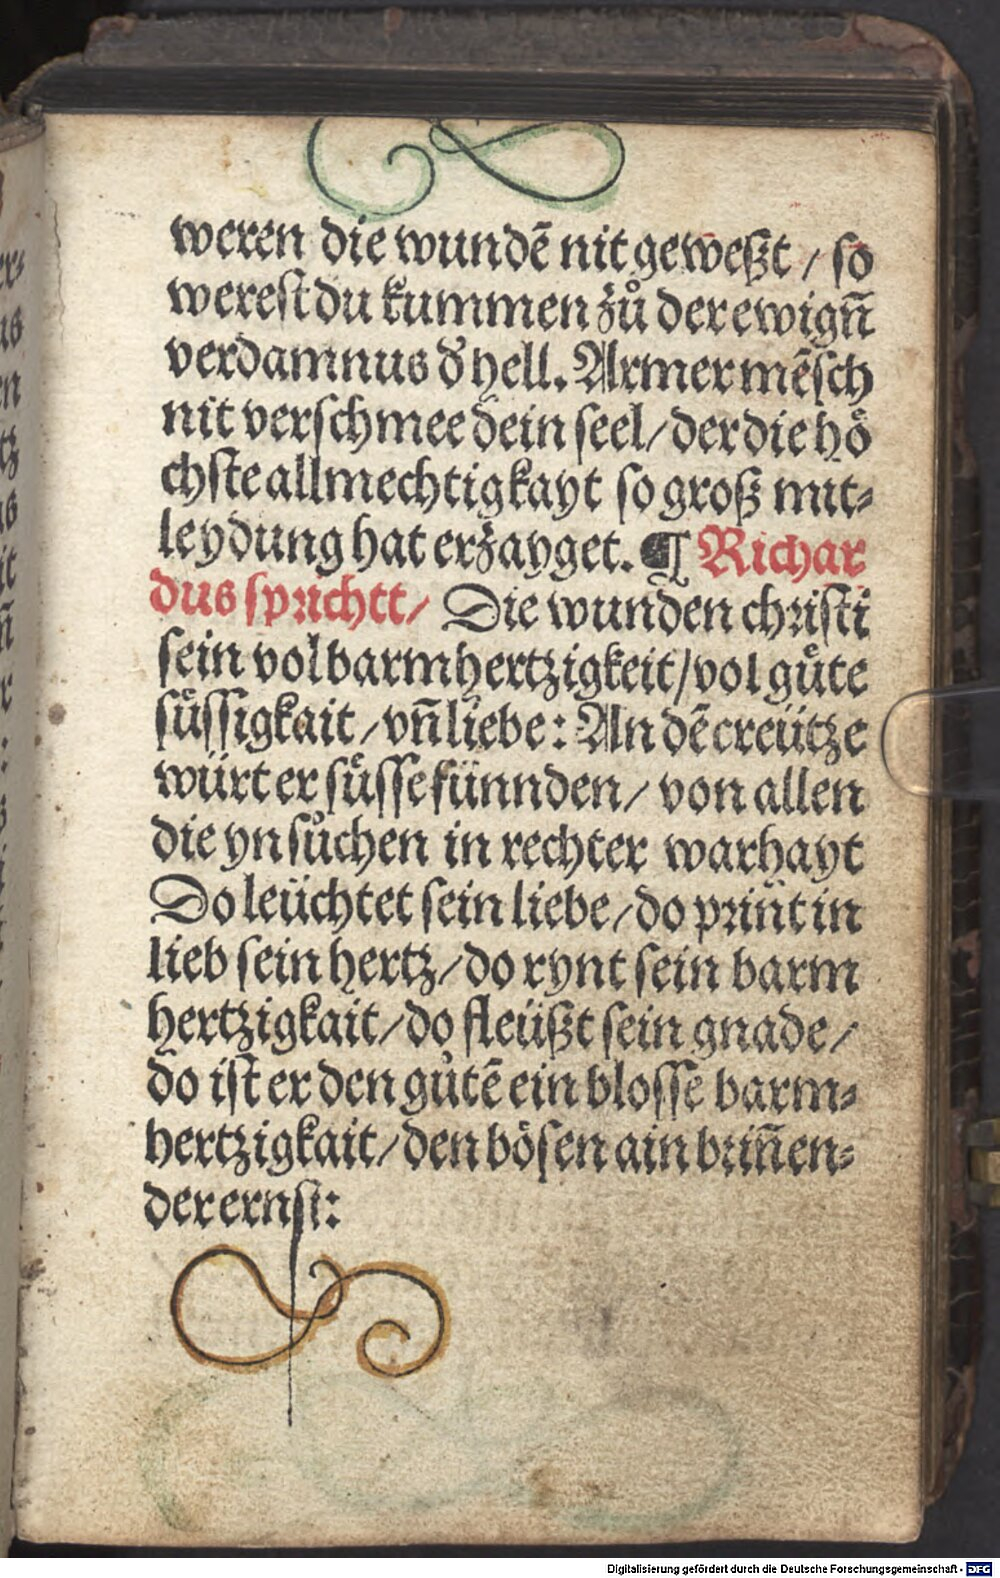 weren die wundē nit geweßt / so
werest du kummen zů der ewign̄
verdamnus d' hell. Armer mēsch
nit verschmee dein seel / der die hoͤ
chste allmechtigkayt so groß mit⸗
leydung hat erzayget. ¶ Richar
dus sprichtt / Die wunden christi
sein vol barmhertzigkeit / vol guͤte
suͤssigkait / vn̄ liebe : An dē creütze
würt er suͤsse fünnden / von allen
die yn sůchen in rechter warhayt
Do leüchtet sein liebe / do prin̄t in
lieb sein hertz / do rynt sein barm
hertzigkait / do fleüßt sein gnade /
do ist er den gůtē ein blosse barm⸗
hertzigkait / den bösen ain brin̄en⸗
der ernst :
Digitalisierung gefördert durch die Deutsche Forschungsgemeinschaft - DFG